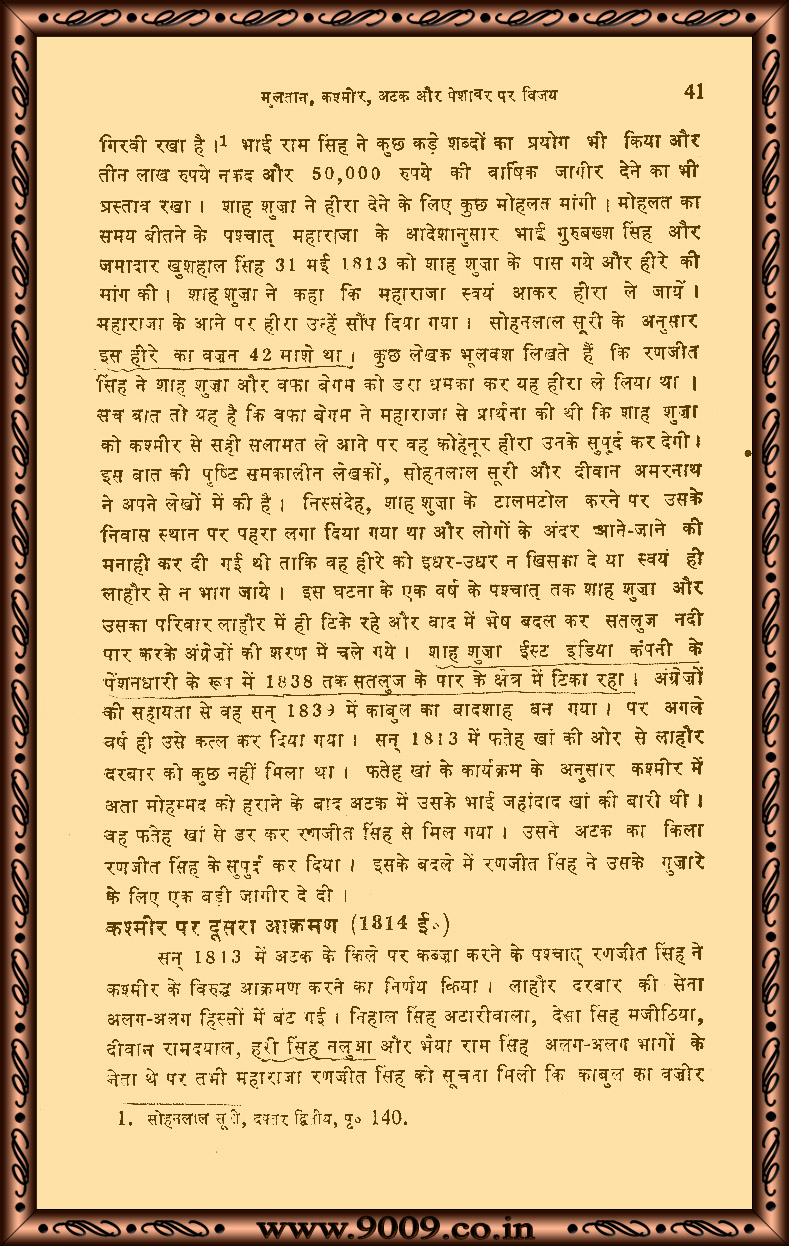 मुलतान, कश्मीर, अटक और पेशावर पर विजय 41
गिरवी रखा है ।1 भाई राम सिंह ने कुछ कड़े शब्दों का प्रयोग भी किया और
तीन लाख रुपये नकद और 50,000 रुपये की वार्षिक जागीर देने का भी
प्रस्ताव रखा । शाह शुजा ने हीरा देने के लिए कुछ मोहलत मांगी । मोहलत का
समय बीतने के पश्चात् महाराजा के आदेशानुसार भाई गुरुबख्श सिंह और
जमादार खुशहाल सिंह 31 मई 1813 को शाह शुजा के पास गये और हीरे की
मांग की । शाह शुजा ने कहा कि महाराजा स्वयं आकर हीरा ले जायें ।
महाराजा के आने पर हीरा उन्हें सौंप दिया गया । सोहनलाल सूरी के अनुसार
इस हीरे का वज़न 42 माशे था । कुछ लेखक भूलवश लिखते हैं कि रणजीत
सिंह ने शाह शुजा और वफा बेगम को डरा धमका कर यह हीरा ले लिया था ।
सच बात तो यह है कि वफा बेगम ने महाराजा से प्रार्थना की थी कि शाह शुजा
को कश्मीर से सही सलामत ले आने पर वह कोहेनूर हीरा उनके सुपुर्द कर देगी ।
इस बात की पुष्टि समकालीन लेखकों, सोहनलाल सूरी और दीवान अमरनाथ
ने अपने लेखों में की है । निस्संदेह, शाह शुजा के टालमटोल करने पर उसके
निवास स्थान पर पहरा लगा दिया गया था और लोगों के अंदर आने-जाने की
मनाही कर दी गई थी ताकि वह हीरे को इधर-उधर न खिसका दे या स्वयं ही
लाहौर से न भाग जाये । इस घटना के एक वर्ष के पश्चात् तक शाह शुजा और
उसका परिवार लाहौर में ही टिके रहे और बाद में भेष बदल कर सतलुज नदी
पार करके अंग्रेजों की शरण में चले गये । शाह शुजा ईस्ट इंडिया कंपनी के
पेंशनधारी के रूप में 1838 तक सतलुज के पार के क्षेत्र में टिका रहा । अंग्रेज़ों
की सहायता से वह सन् 1839 में काबुल का बादशाह बन गया । पर अगले
वर्ष ही उसे कत्ल कर दिया गया । सन् 1813 में फतेह खां की ओर से लाहौर
दरबार को कुछ नहीं मिला था । फतेह खां के कार्यक्रम के अनुसार कश्मीर में
अता मोहम्मद को हराने के बाद अटक में उसके भाई जहांदाद खां की बारी थी ।
वह फतेह खां से डर कर रणजीत सिंह से मिल गया । उसने अटक का किला
रणजीत सिंह के सुपुर्द कर दिया । इसके बदले में रणजीत सिंह ने उसके गुजारे
के लिए एक बड़ी जागीर दे दी ।
कश्मीर पर दूसरा आक्रमण (1814 ई०)
सन् 1813 में अटक के किले पर कब्ज़ा करने के पश्चात् रणजीत सिंह ने
कश्मीर के विरुद्ध आक्रमण करने का निर्णय किया । लाहौर दरबार की सेना
अलग-अलग हिस्सों में बंट गई । निहाल सिंह अटारीवाला, देसा सिंह मजीठिया,
दीवान रामदयाल, हरी सिंह नलुआ और भैया राम सिंह अलग-अलग भागों के
नेता थे पर तभी महाराजा रणजीत सिंह को सूचना मिली कि काबुल का वज़ीर
1. सोहनलाल सूरी, दफ्तर द्वितीय, पृ० 140.
www.9009.co.in